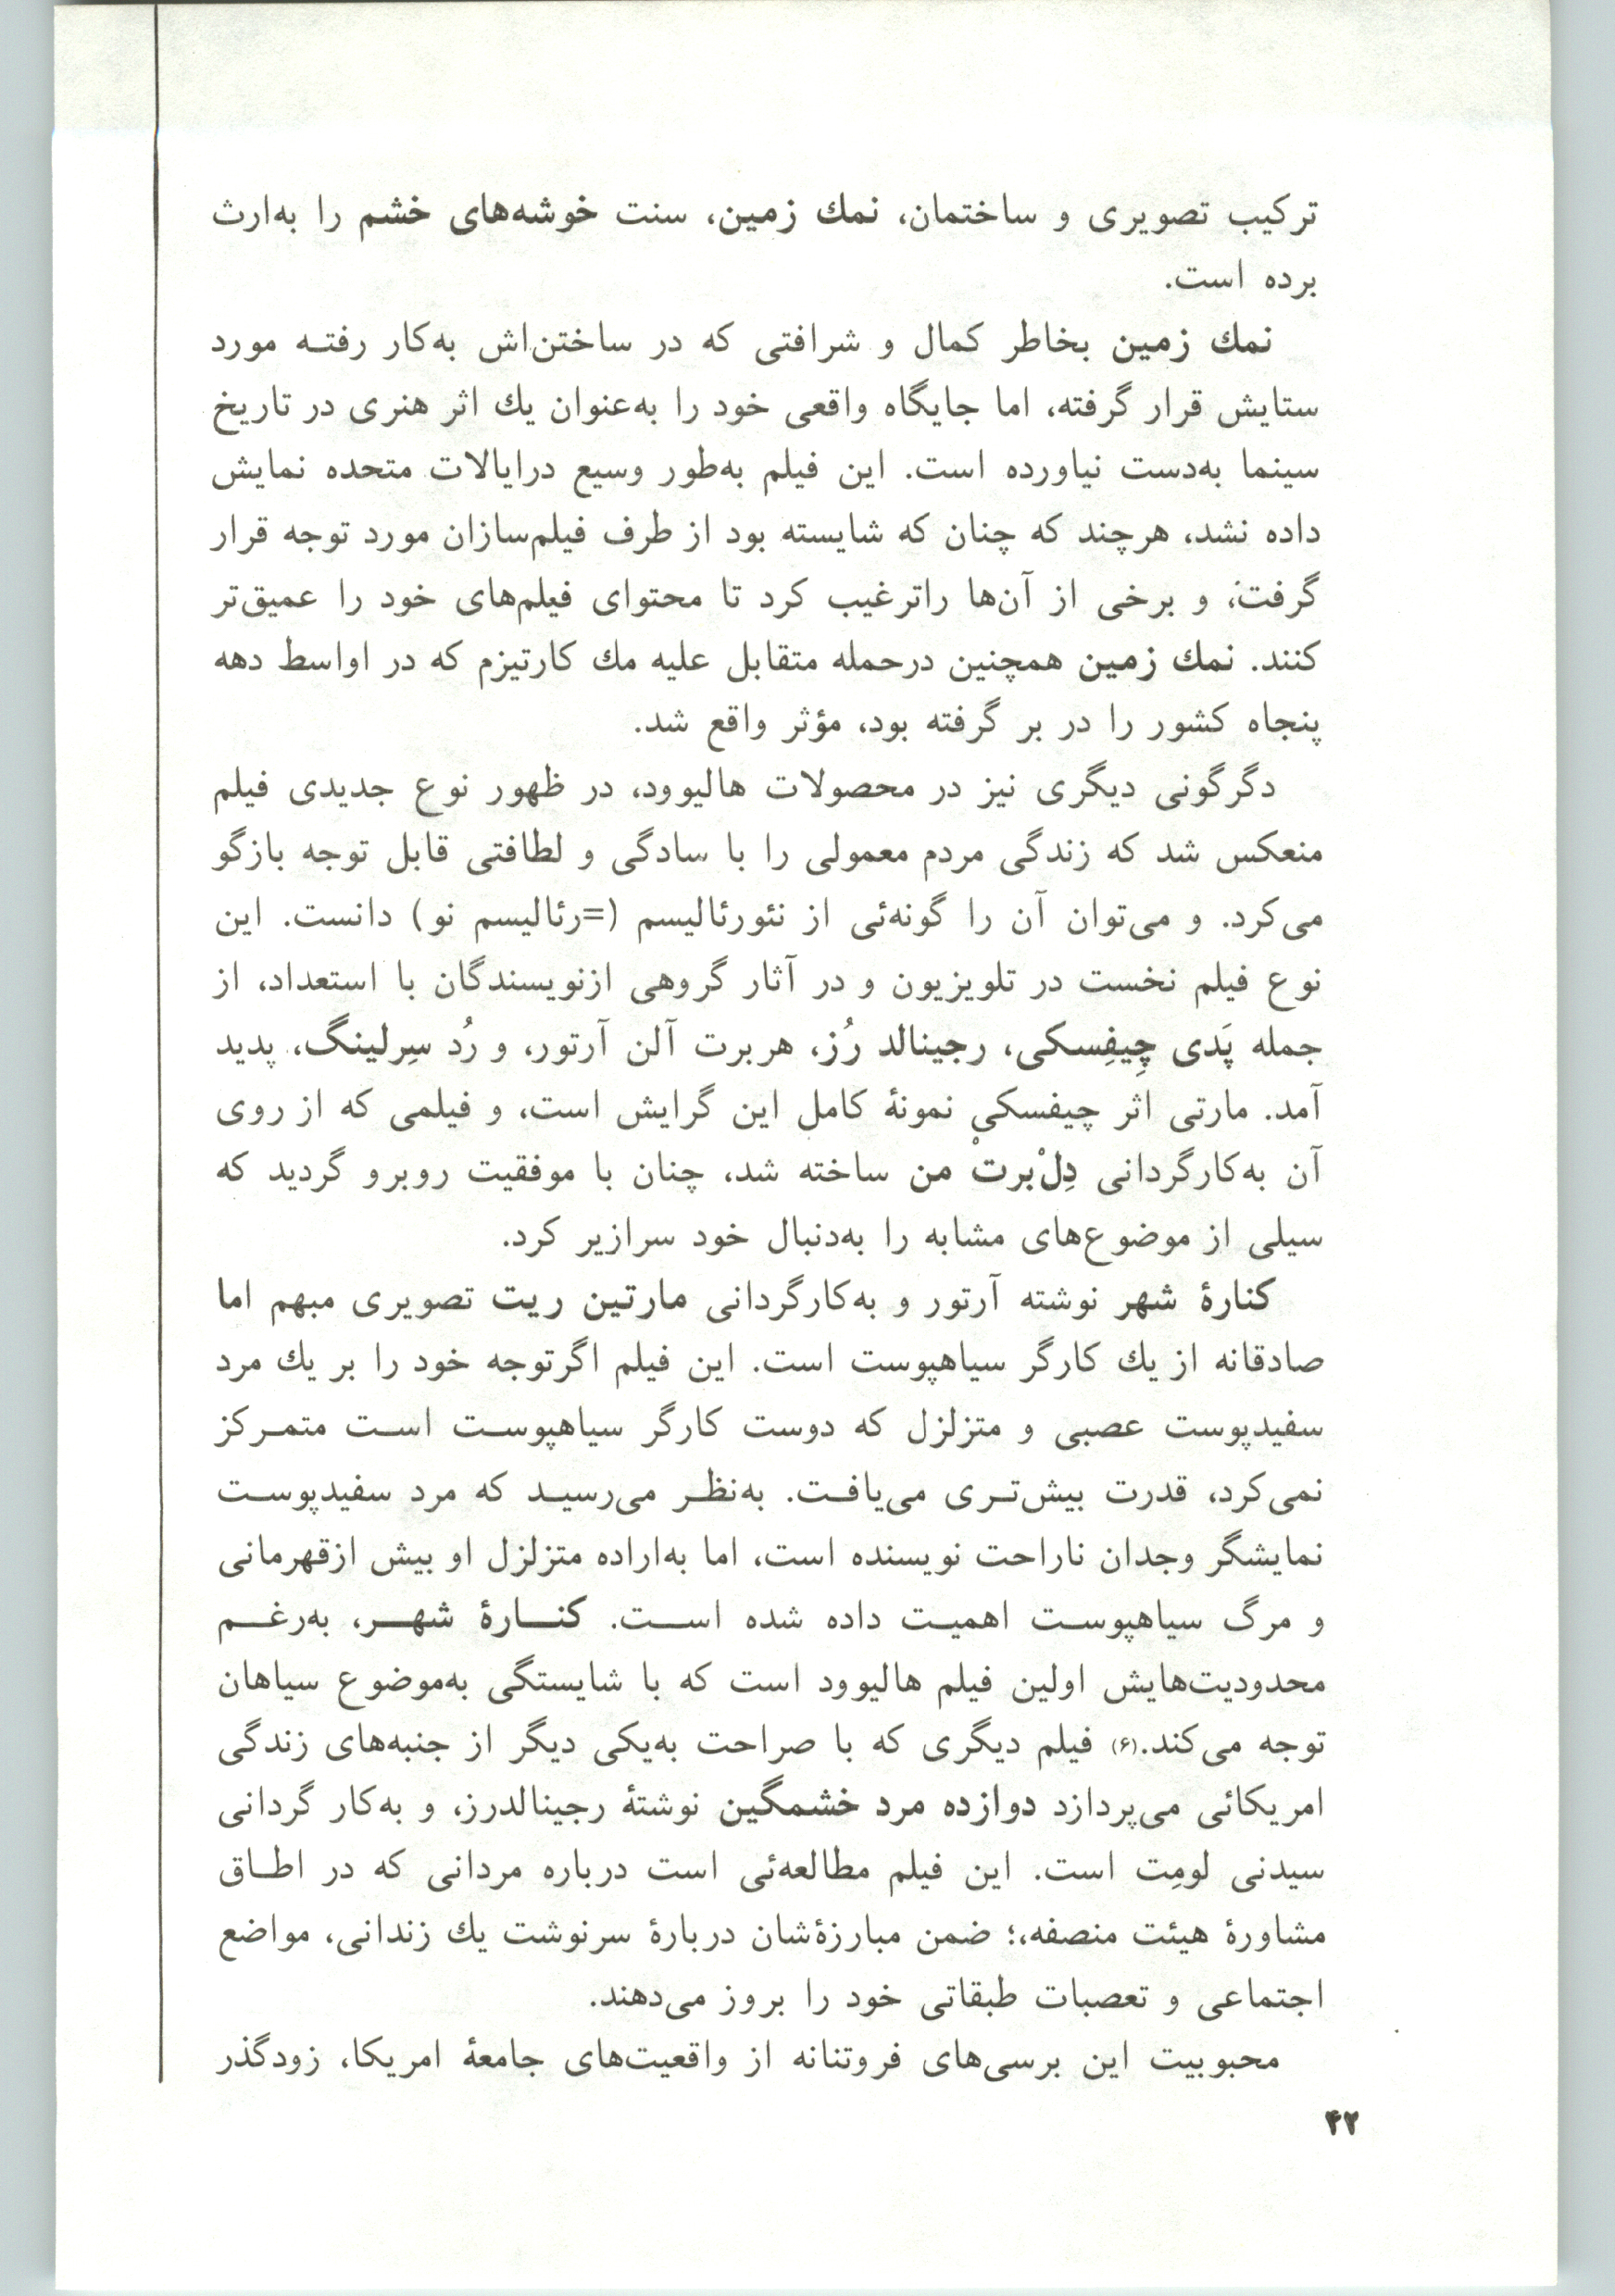 ترکیب تصویری و ساختمان، نمك زمین، سنت خوشه‌های خشم را به‌ارث
برده است.
نمك زمین بخاطر کمال و شرافتی که در ساختن‌اش به‌کار رفته مورد
ستایش قرار گرفته، اما جایگاه واقعی خود را به‌عنوان یك اثر هنری در تاریخ
سینما به‌دست نیاورده است. این فیلم به‌طور وسیع درایالات متحده نمایش
داده نشد، هرچند که چنان که شایسته بود از طرف فیلم‌سازان مورد توجه قرار
گرفت؛ و برخی از آن‌ها راترغیب کرد تا محتوای فیلم‌های خود را عمیق‌تر
کنند. نمك زمین همچنین درحمله متقابل علیه مك کارتیزم که در اواسط دهه
پنجاه کشور را در بر گرفته بود، مؤثر واقع شد.
دگرگونی دیگری نیز در محصولات هالیوود، در ظهور نوع جدیدی فیلم
منعکس شد که زندگی مردم معمولی را با سادگی و لطافتی قابل توجه بازگو
می‌کرد. و می‌توان آن را گونه‌ئی از نئورئالیسم (=رئالیسم نو) دانست. این
نوع فیلم نخست در تلویزیون و در آثار گروهی ازنویسندگان با استعداد، از
جمله پَدی چِیفِسکی، رجینالد رُز، هربرت آلن آرتور، و رُد سِرلینگ، پدید
آمد. مارتی اثر چیفسکی نمونهٔ کامل این گرایش است، و فیلمی که از روی
آن به‌کارگردانی دِلْبرتْ من ساخته شد، چنان با موفقیت روبرو گردید که
سیلی از موضوع‌های مشابه را به‌دنبال خود سرازیر کرد.
کنارهٔ شهر نوشته آرتور و به‌کارگردانی مارتین ریت تصویری مبهم اما
صادقانه از یك کارگر سیاهپوست است. این فیلم اگرتوجه خود را بر یك مرد
سفیدپوست عصبی و متزلزل که دوست کارگر سیاهپوست است متمرکز
نمی‌کرد، قدرت بیش‌تری می‌یافت. به‌نظر می‌رسید که مرد سفیدپوست
نمایشگر وجدان ناراحت نویسنده است، اما به‌اراده متزلزل او بیش ازقهرمانی
و مرگ سیاهپوست اهمیت داده شده است. کنارهٔ شهر، به‌رغم
محدودیت‌هایش اولین فیلم هالیوود است که با شایستگی به‌موضوع سیاهان
توجه می‌کند.(۶) فیلم دیگری که با صراحت به‌یکی دیگر از جنبه‌های زندگی
امریکائی می‌پردازد دوازده مرد خشمگین نوشتهٔ رجینالدرز، و به‌کار گردانی
سیدنی لومِت است. این فیلم مطالعه‌ئی است درباره مردانی که در اطاق
مشاورهٔ هیئت منصفه،؛ ضمن مبارزهٔ‌شان دربارهٔ سرنوشت یك زندانی، مواضع
اجتماعی و تعصبات طبقاتی خود را بروز می‌دهند.
محبوبیت این برسی‌های فروتنانه از واقعیت‌های جامعهٔ امریکا، زودگذر
۴۲